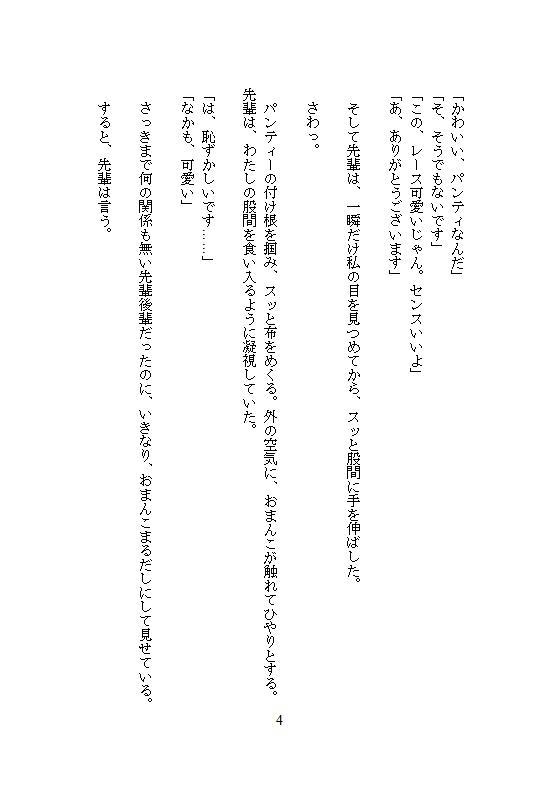 「かわいい、パンティなんだ」
「そ、そうでもないです」
「この、レース可愛いじゃん。センスいいよ」
「あ、ありがとうございます」
そして先輩は、一瞬だけ私の目を見つめてから、スッと股間に手を伸ばした。
さわっ。
パンティーの付け根を掴み、スッと布をめくる。外の空気に、おまんこが触れてひやりとする。
先輩は、わたしの股間を食い入るように凝視していた。
「は、恥ずかしいです……」
「なかも、可愛い」
さっきまで何の関係も無い先輩後輩だったのに、いきなり、おまんこまるだしにして見せている。
すると、先輩は言う。
4